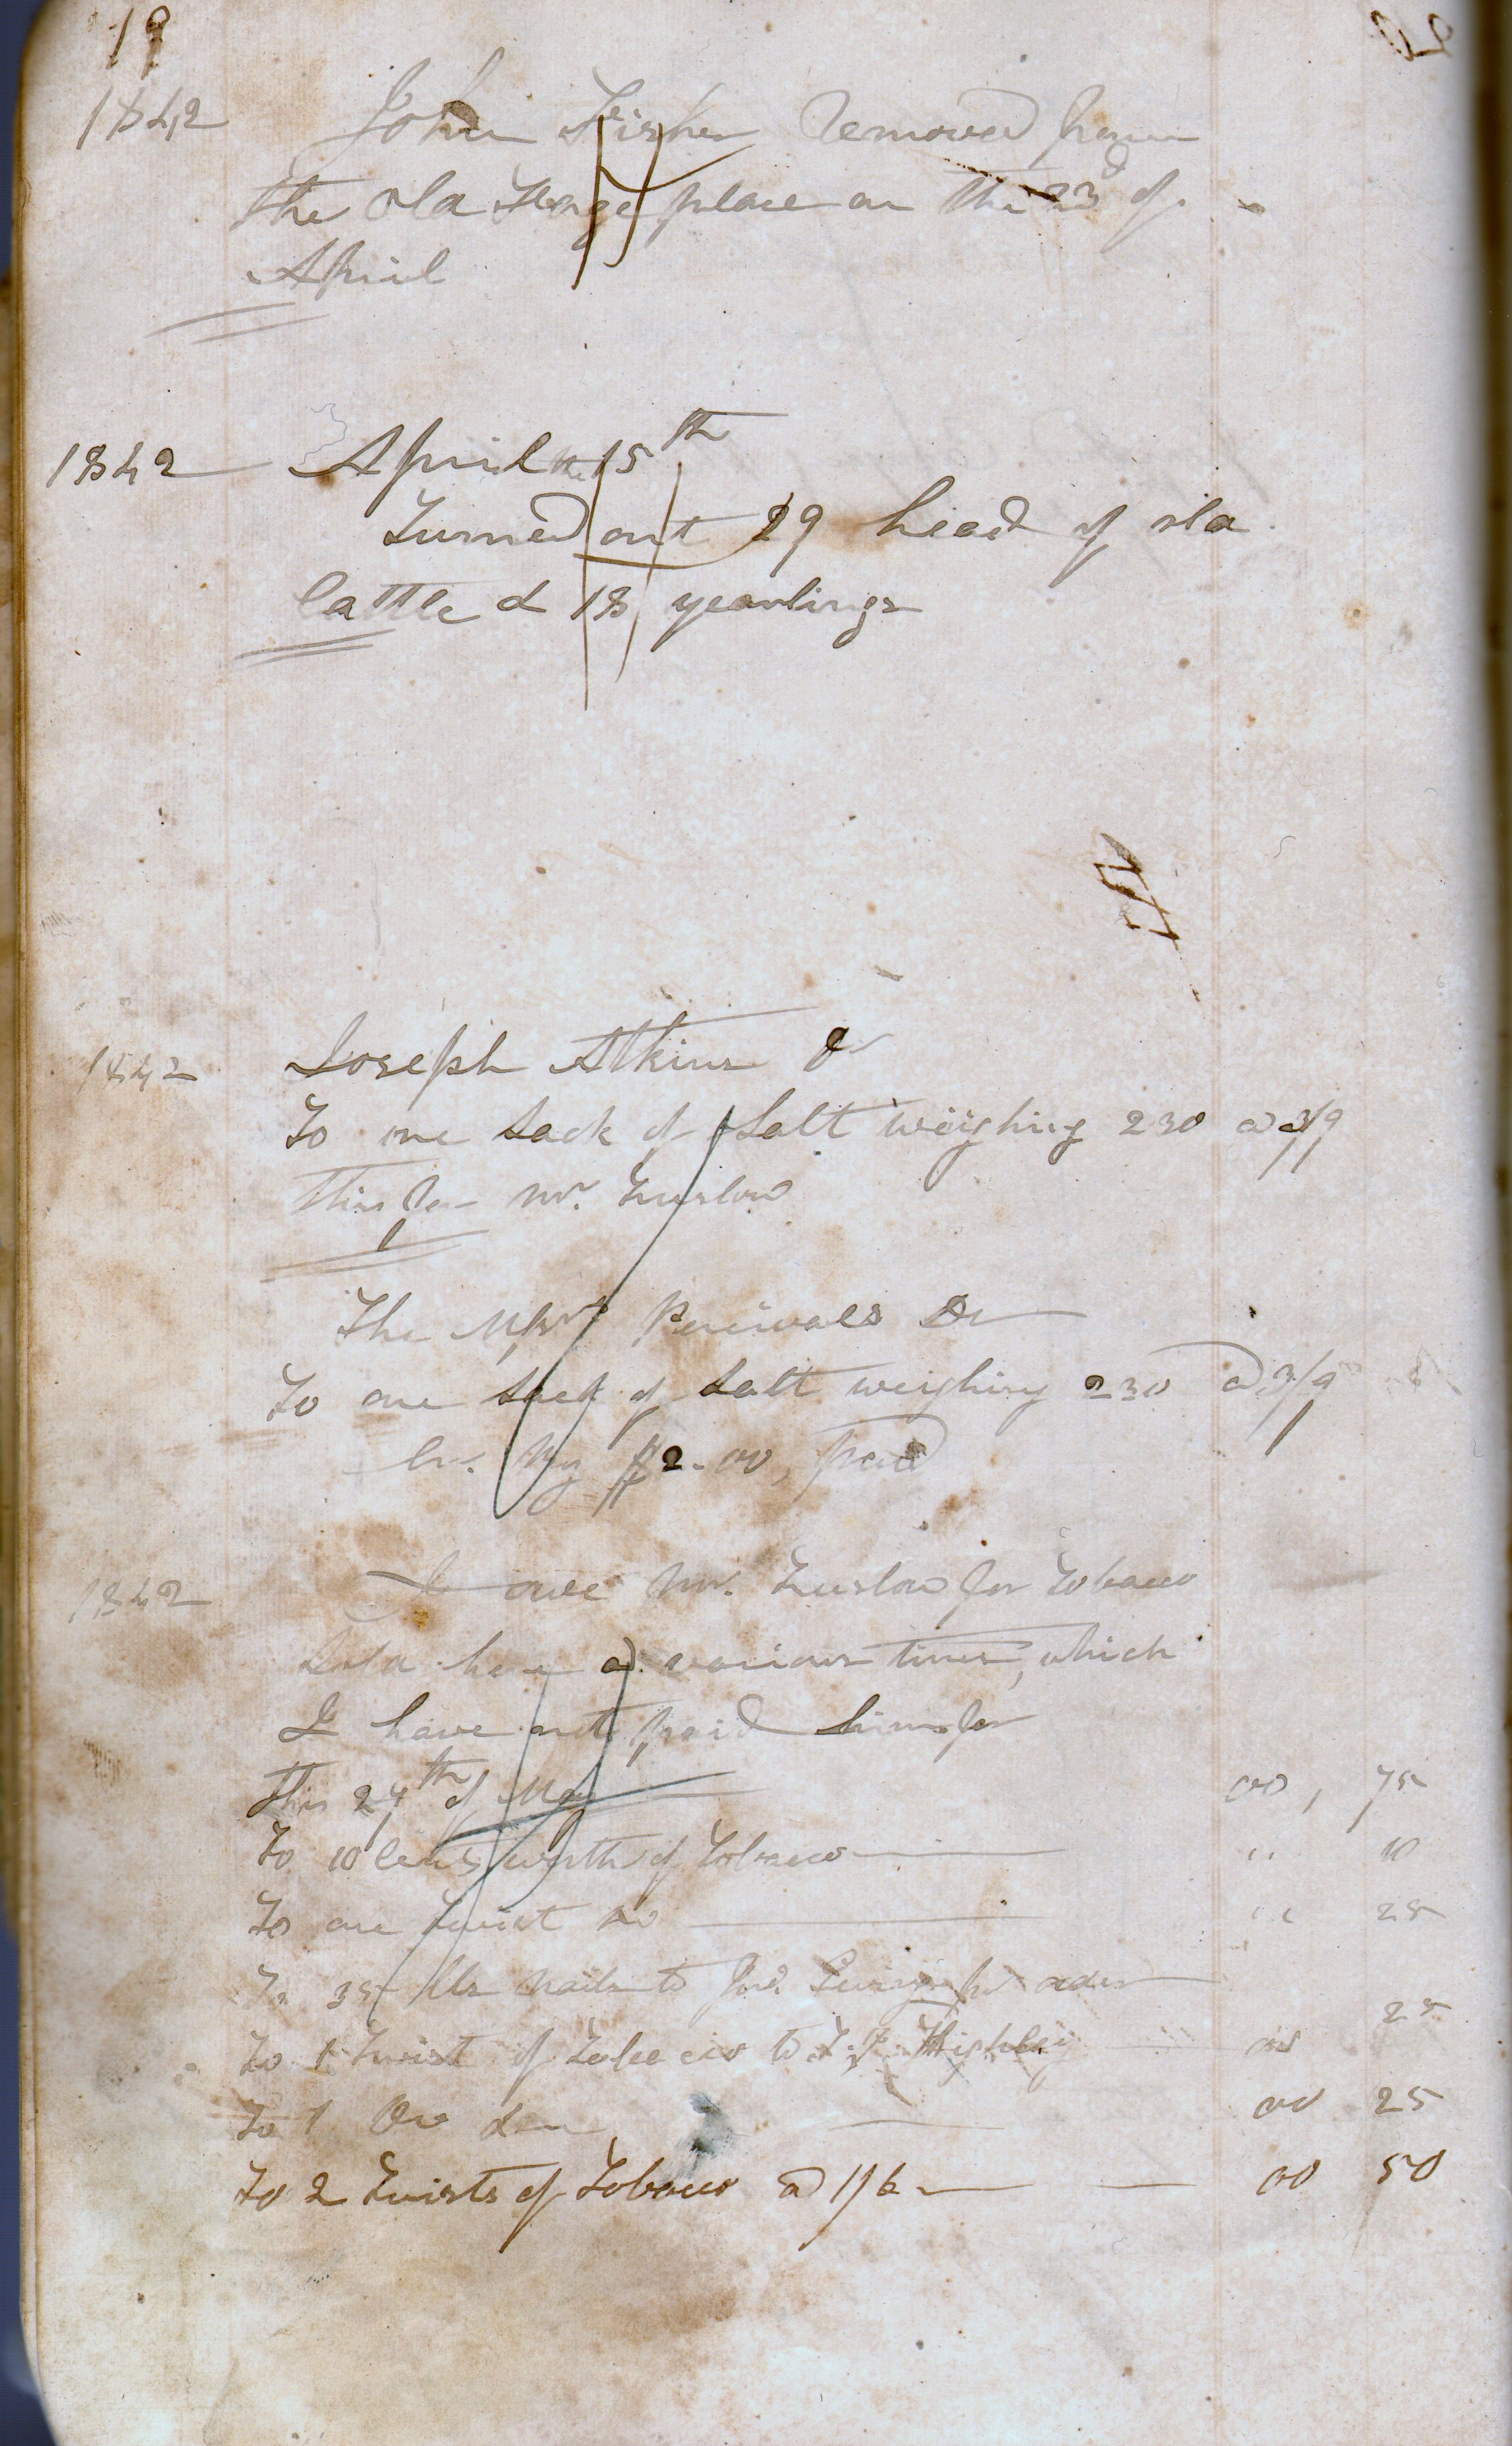 19
1842 John Fisher removed from
the old Forge place on the 23d of
April
1842 April the 15th
Turned out 29 head of old
Cattle & 18 yearlings
1842 Joseph Atkins Dr
To one Sack of Salt weighing 230 @ 3/9
this per Mr. Luslow
The Percivals Dr
To one Sack of Salt weighing 230 @ 3/9
Cr. By $2.00, paid
1842 I owe Mr. Luslow for Tobacco
Sold here @ various times, which
I have not paid him for
this 24th of May 00, 75
To 10 Cents worth of Tobacco " 10
To one twist Do " 25
To 35 lbs Nails to order
To 1 Twist of Tobacco to Highley 00 25
To 1 Do 00 25
To 2 Twists of Tobacco @ 1/6 00 50